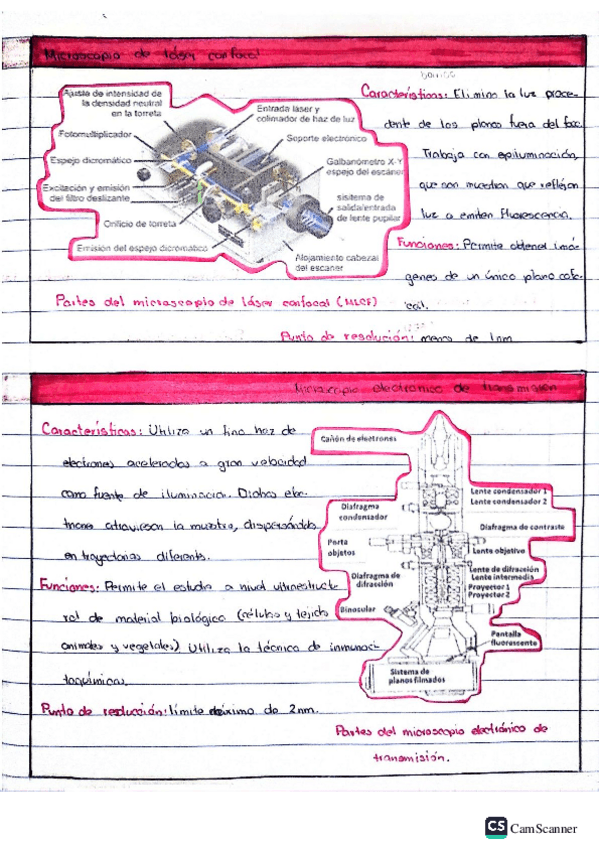 Microscopio de láser confocal
Ajuste de intensidad de
la densidad neutral
en la torreta
Fotomultiplicador
Espejo dicromático
Excitación y emisión
del filtro deslizante
Orificio de torreta
Emisión del espejo dicromático
Entrada láser y
colimador de haz de luz
Soporte electrónico
Galbanómetro X-Y
espejo del escáner
sisitema de
salida/entrada
de lente pupilar
Alojamiento cabezal
del escaner
Partes del microscopio de láser confocal (MLCF)
Características: Elimina la luz proce-
dente de los planos fuera del foco.
Trabaja con epiluminación,
que son muestran que reflejan
luz o emiten fluorescencia.
Funciones: Permite obtener imá-
genes de un único plano cofo-
cal.
Punto de resolución: menos de 1nm
Microscopio electrónico de transmisión
Características: Utiliza un fino haz de
electrones acelerados a gran velocidad
como fuente de iluminación. Dichos elec-
trones atraviesan la muestra, dispersándolos
en trayectorias diferentes.
Funciones: Permite el estudio a nivel ultraestructu
ral de material biológico (células y tejidos
animales y vegetales). Utiliza la técnica de inmunoci-
toquímicas.
Punto de resolución: límite máximo de 2nm.
Cañón de electrones
Diafragma
condensador
Porta
objetos
Diafragma de
difracción
Binocular
Sistema de
planos filmados
Lente condensador 1
Lente condensador 2
Diafragma de contraste
Lente objetivo
Lente de difracción
Lente intermedia
Proyector 1
Proyector 2
Pantalla
fluorescente
Partes del microscopio electrónico de
transmisión.
CS CamScanner